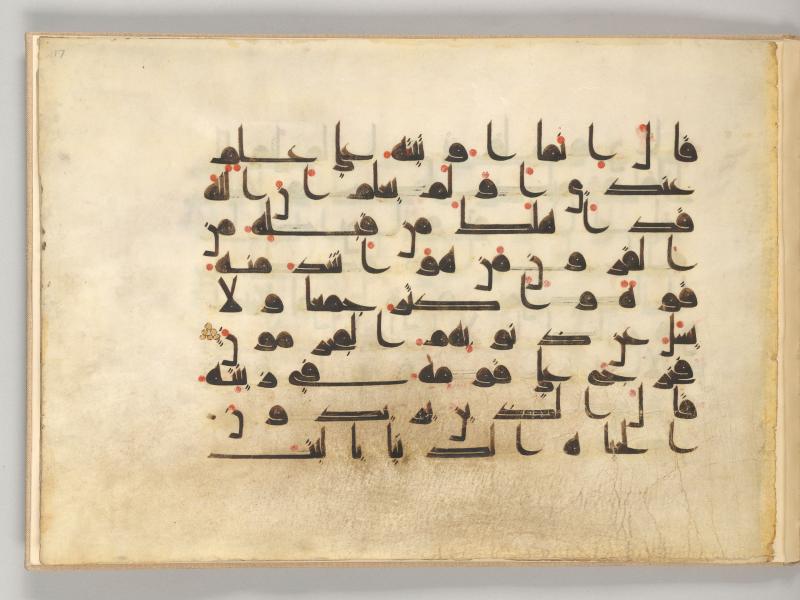 17
قال انما اوتيته على علم
عندى اولم يعلم ان الله
قد اهلك من قبله من
القرون من هو اشد منه
قوه واكثر جمعا ولا
يسل عن ذنوبهم المجرمون
فخرج على قومه فى زينته
قال الذين يريدون
الحياه الدنيا يا ليت